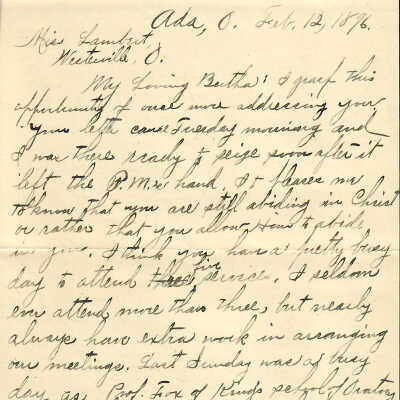 Ada, O. Feb. 12, 1896.
Miss Lambert,
Westerville, O.
My Loving Bertha: I grasp this
opportunity of once more addressing you.
Your letter came Tuesday morning and
I was there ready to seize soon after it
left the P.M.'s hand. It pleases me
to know that you are still abiding in Christ
or rather that you allow Him to abide
in you. I think you have a pretty busy
day to attend five services. I seldom
ever attend more than three, but nearly
always have extra work in arranging
our meetings. Last Sunday was a busy
day as Prof. Fox of King's school of Oratory